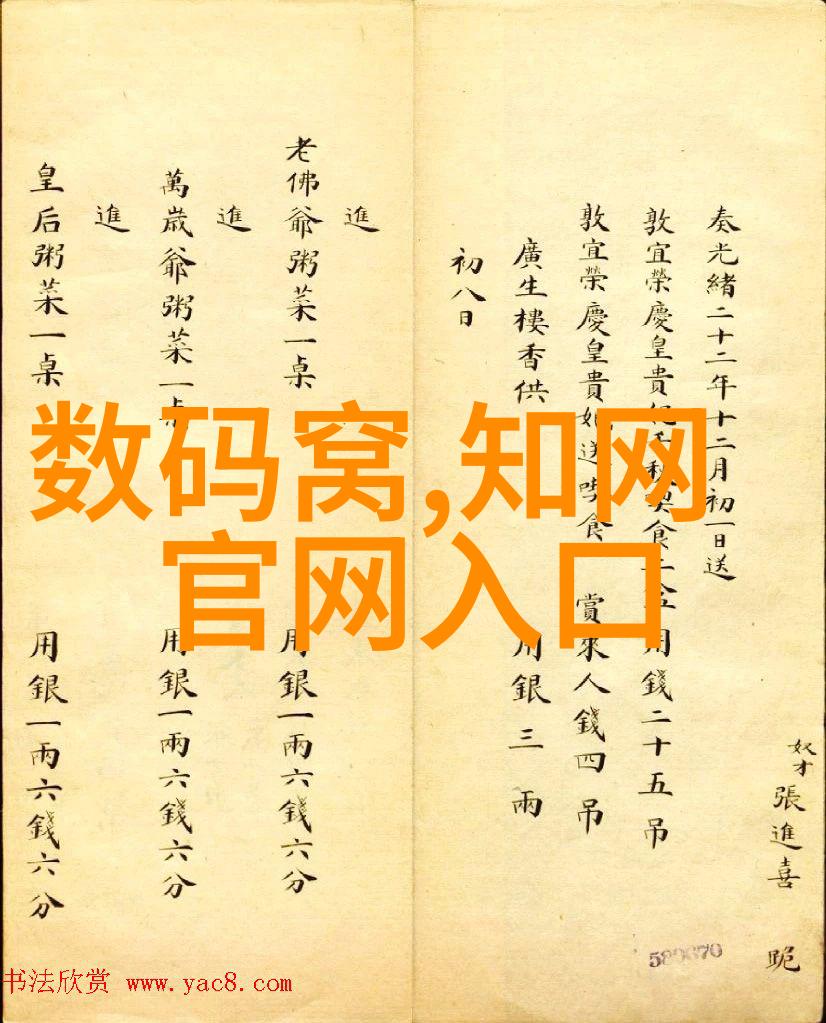 奴才張進喜 跪
奏光緒二十二年十二月初一日送
敦宜榮慶皇貴 食二 用錢二十五吊
敦宜榮慶皇貴妃送喫食 賞來人錢四吊
廣生樓香供 用銀三兩
初八日
進
老佛爺粥菜一桌 用銀一兩六錢六分
進
萬歲爺粥菜一桌 用銀一兩六錢六分
進
皇后粥菜一桌 用銀一兩六錢六分
数码窝,知网
官网入口
书法欣赏 www.yac8.com